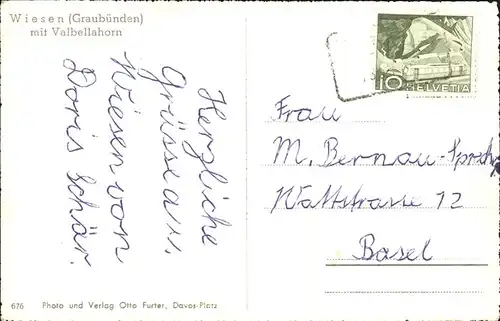 Wiesen (Graubünden)
mit Valbellahorn
Herzliche
Grüsse aus
Wiesen von
Doris Schär.
10 HELVETIA
Frau
M. Bernau-
Wattstrasse 12
Basel
676 Photo und Verlag Otto Furter, Davos-Platz